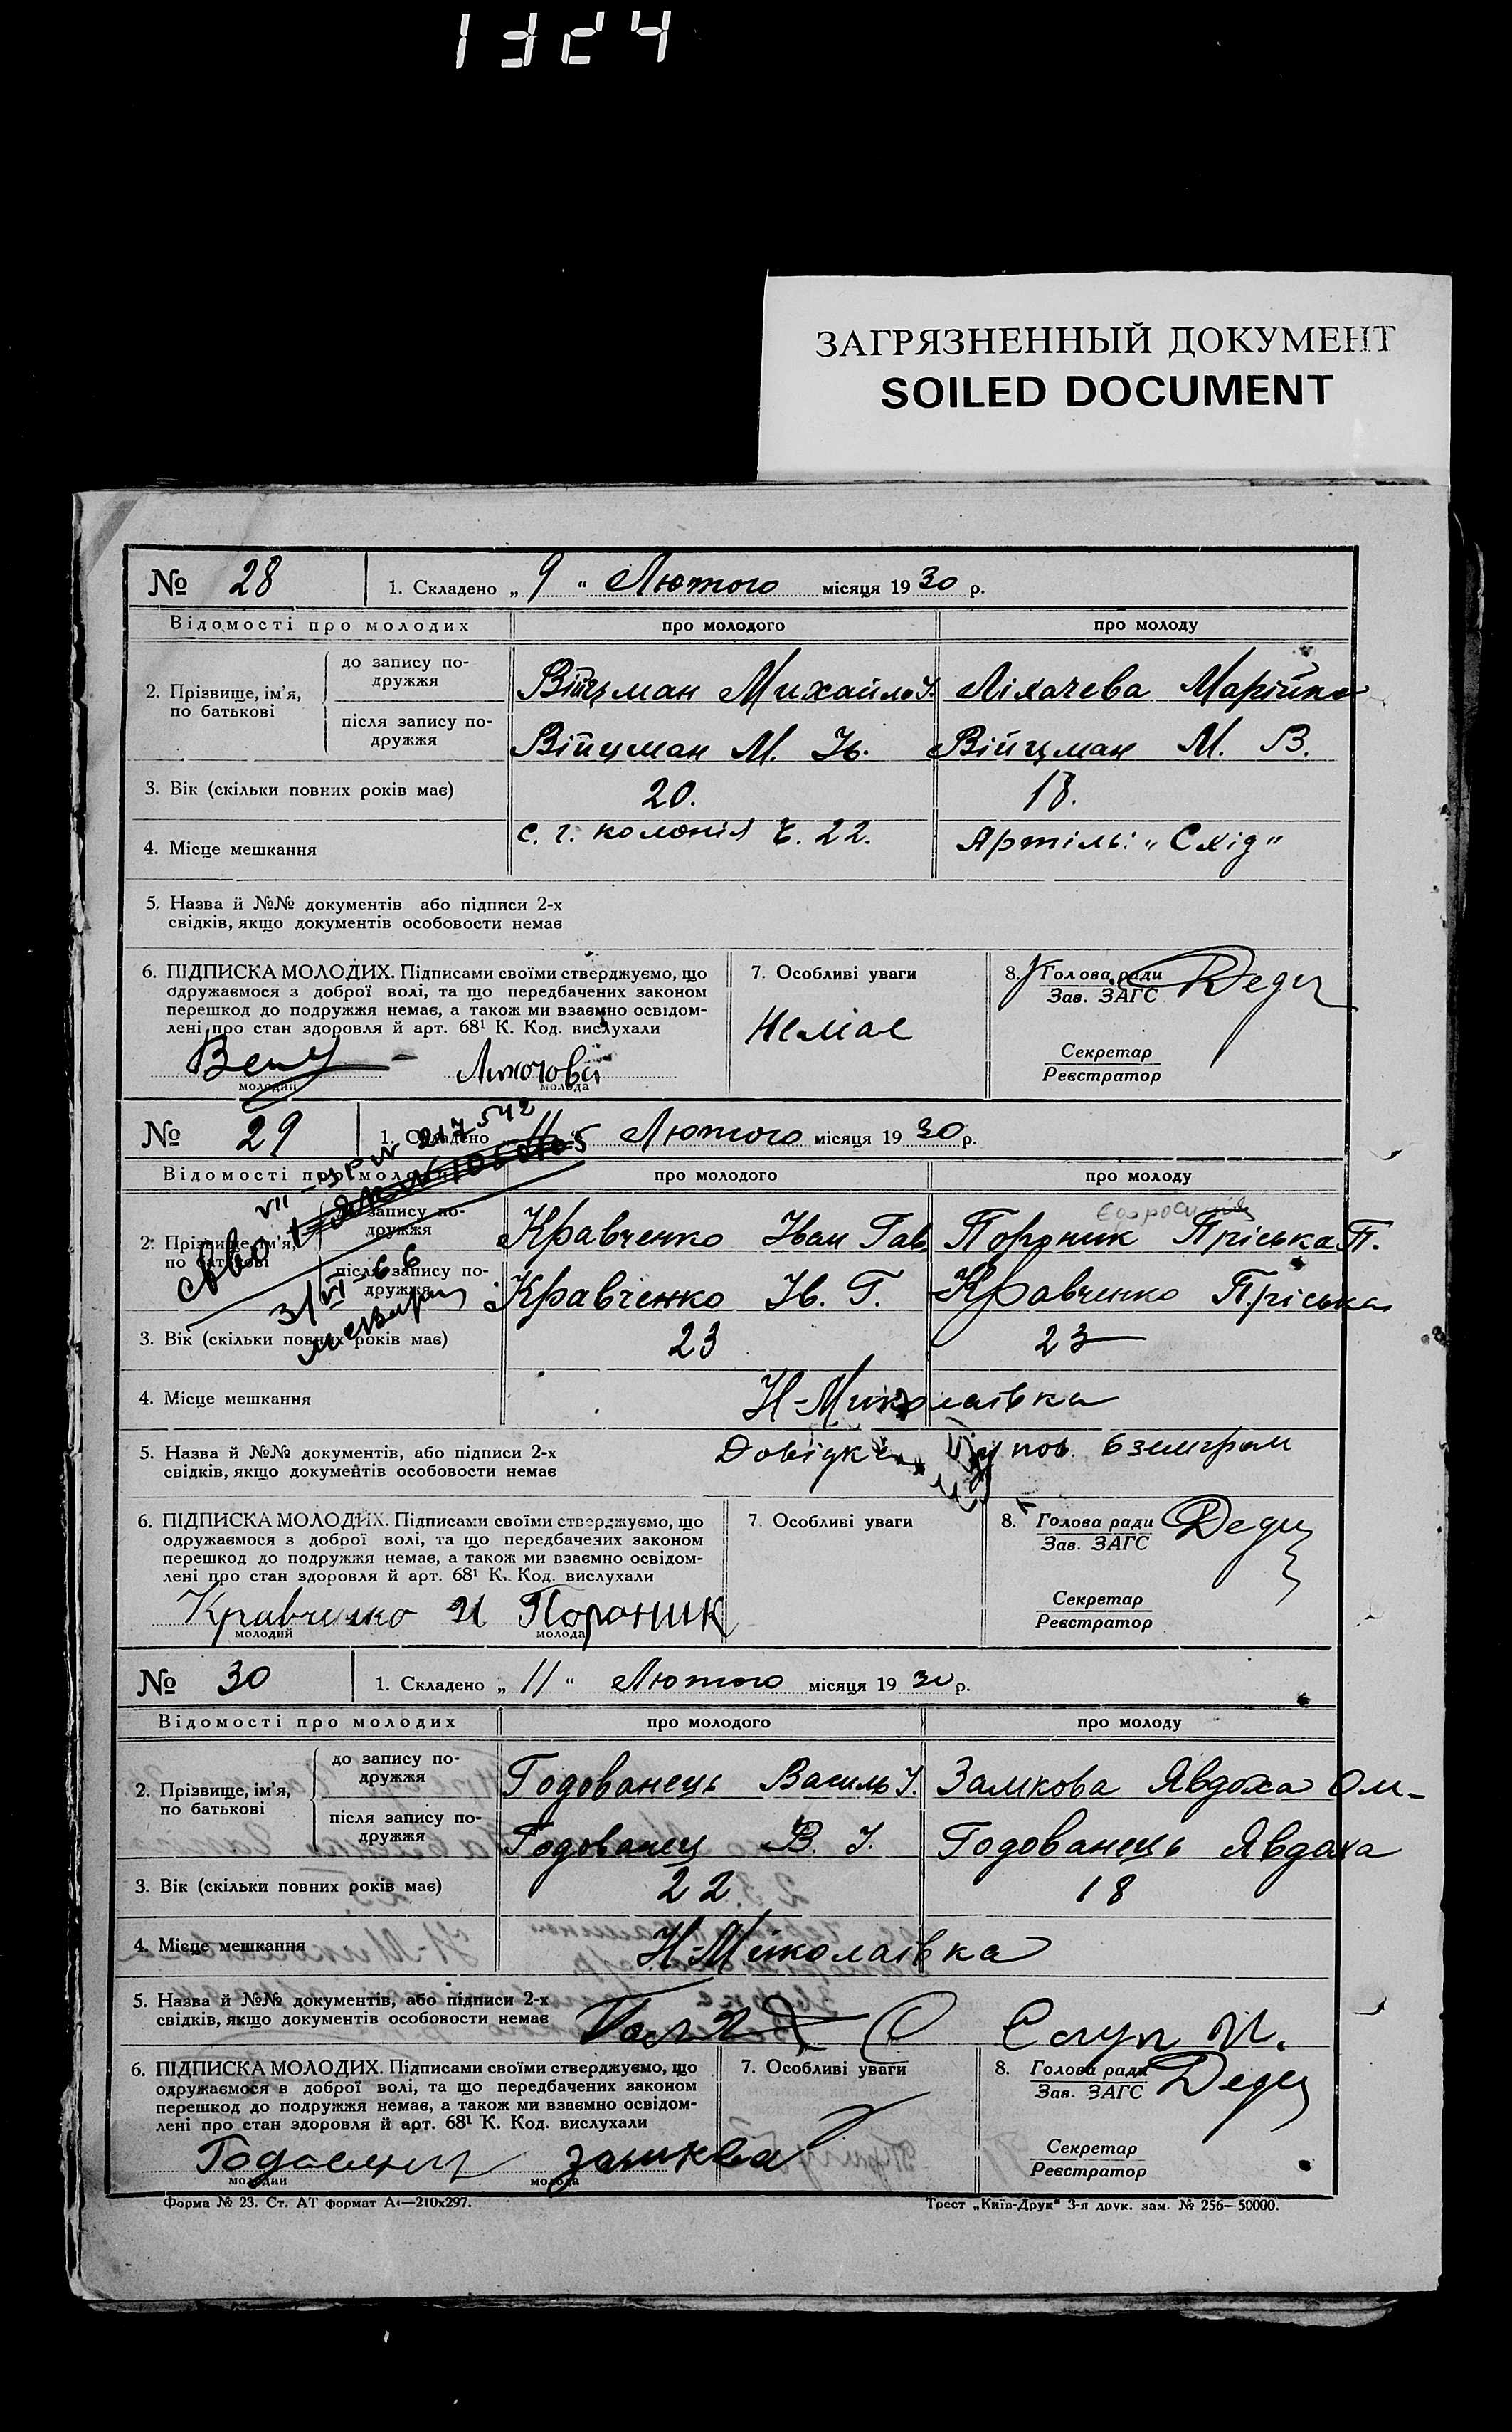 1324
ЗАГРЯЗНЕННЫЙ ДОКУМЕНТ
SOILED DOCUMENT
№ 28 1. Складено „ 9 “ Лютого місяця 1930 р.
Відомості про молодих про молодого про молоду
2. Прізвище, ім'я, по батькові
до запису по-
дружжя
Війцман Михайло І. Ліхачева Марійка
після запису по-
дружжя
Війцман М. Ів. Війцман М. В.
3. Вік (скільки повних років має) 20. 18.
4. Місце мешкання с. г. колонія ч. 22. Артіль: „Схід“
5. Назва й №№ документів або підписи 2-х
свідків, якщо документів особовости немає
6. ПІДПИСКА МОЛОДИХ. Підписами своїми стверджуємо, що
одружаємося з доброї волі, та що передбачених законом
перешкод до подружжя немає, а також ми взаємно освідом-
лені про стан здоровля й арт. 68¹ К. Код. вислухали
молодий молода
7. Особливі уваги
Немає
8. Голова ради
Зав. ЗАГС
Секретар
Реєстратор
№ 29 1. Складено „ 11 “ Лютого місяця 1930 р.
VII - ЯР № 217542
31/VI-66
Відомості про молодих про молодого про молоду
2. Прізвище, ім'я, по батькові
до запису по-
дружжя
Кравченко Іван Гав Пороник Пріська П.
після запису по-
дружжя
Кравченко Ів. Г. Кравченко Пріська
3. Вік (скільки повних років має) 23 23
4. Місце мешкання Н-Миколаївка
5. Назва й №№ документів, або підписи 2-х
свідків, якщо документів особовости немає
Довідки
6. ПІДПИСКА МОЛОДИХ. Підписами своїми стверджуємо, що
одружаємося з доброї волі, та що передбачених законом
перешкод до подружжя немає, а також ми взаємно освідом-
лені про стан здоровля й арт. 68¹ К. Код. вислухали
Кравченко И Пороник
молодий молода
7. Особливі уваги
8. Голова ради
Зав. ЗАГС
Секретар
Реєстратор
№ 30 1. Складено „ 11 “ Лютого місяця 1930 р.
Відомості про молодих про молодого про молоду
2. Прізвище, ім'я, по батькові
до запису по-
дружжя
Годованець Василь І. Замкова Явдоха Ом-
після запису по-
дружжя
Годованец В. І. Годованець Явдоха
3. Вік (скільки повних років має) 22. 18
4. Місце мешкання Н-Миколаївка
5. Назва й №№ документів, або підписи 2-х
свідків, якщо документів особовости немає
6. ПІДПИСКА МОЛОДИХ. Підписами своїми стверджуємо, що
одружаємося в доброї волі, та що передбачених законом
перешкод до подружжя немає, а також ми взаємно освідом-
лені про стан здоровля й арт. 68¹ К. Код. вислухали
молодий молода
7. Особливі уваги
8. Голова ради
Зав. ЗАГС
Секретар
Реєстратор
Форма № 23. Ст. АТ формат А4—210х297.
Трест „Київ-Друк“ 3-я друк. зам. № 256—50000.